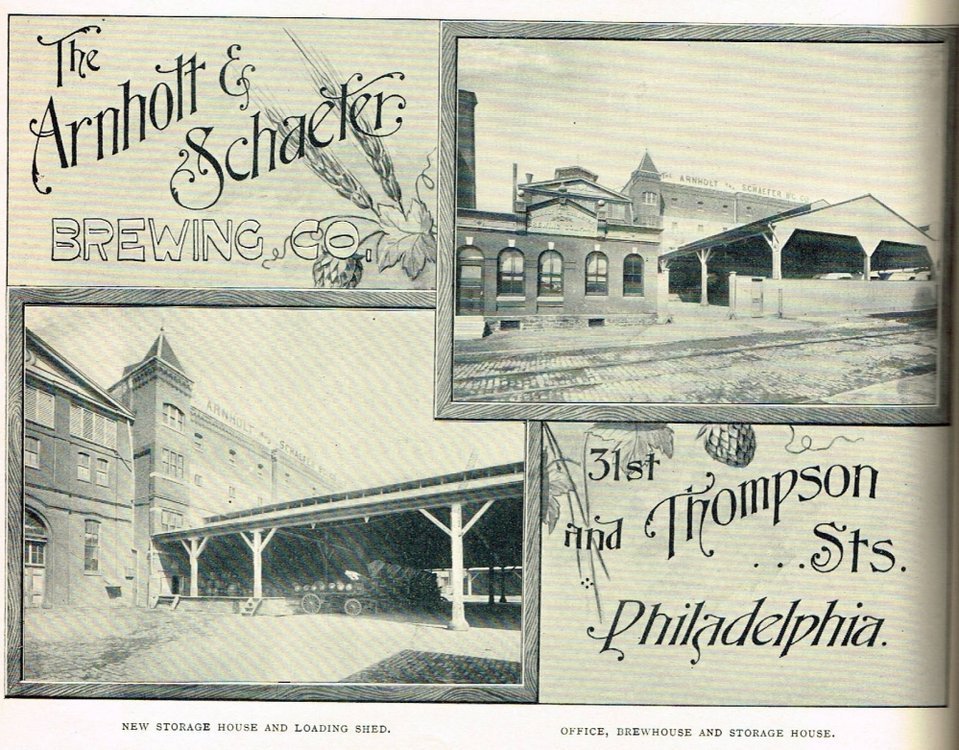 The
Arnholt &
Schaefer
BREWING CO.
ARNHOLT AND SCHAEFER
ARNHOLT AND SCHAEFER
31st
and Thompson
...Sts.
Philadelphia.
NEW STORAGE HOUSE AND LOADING SHED.
OFFICE, BREWHOUSE AND STORAGE HOUSE.